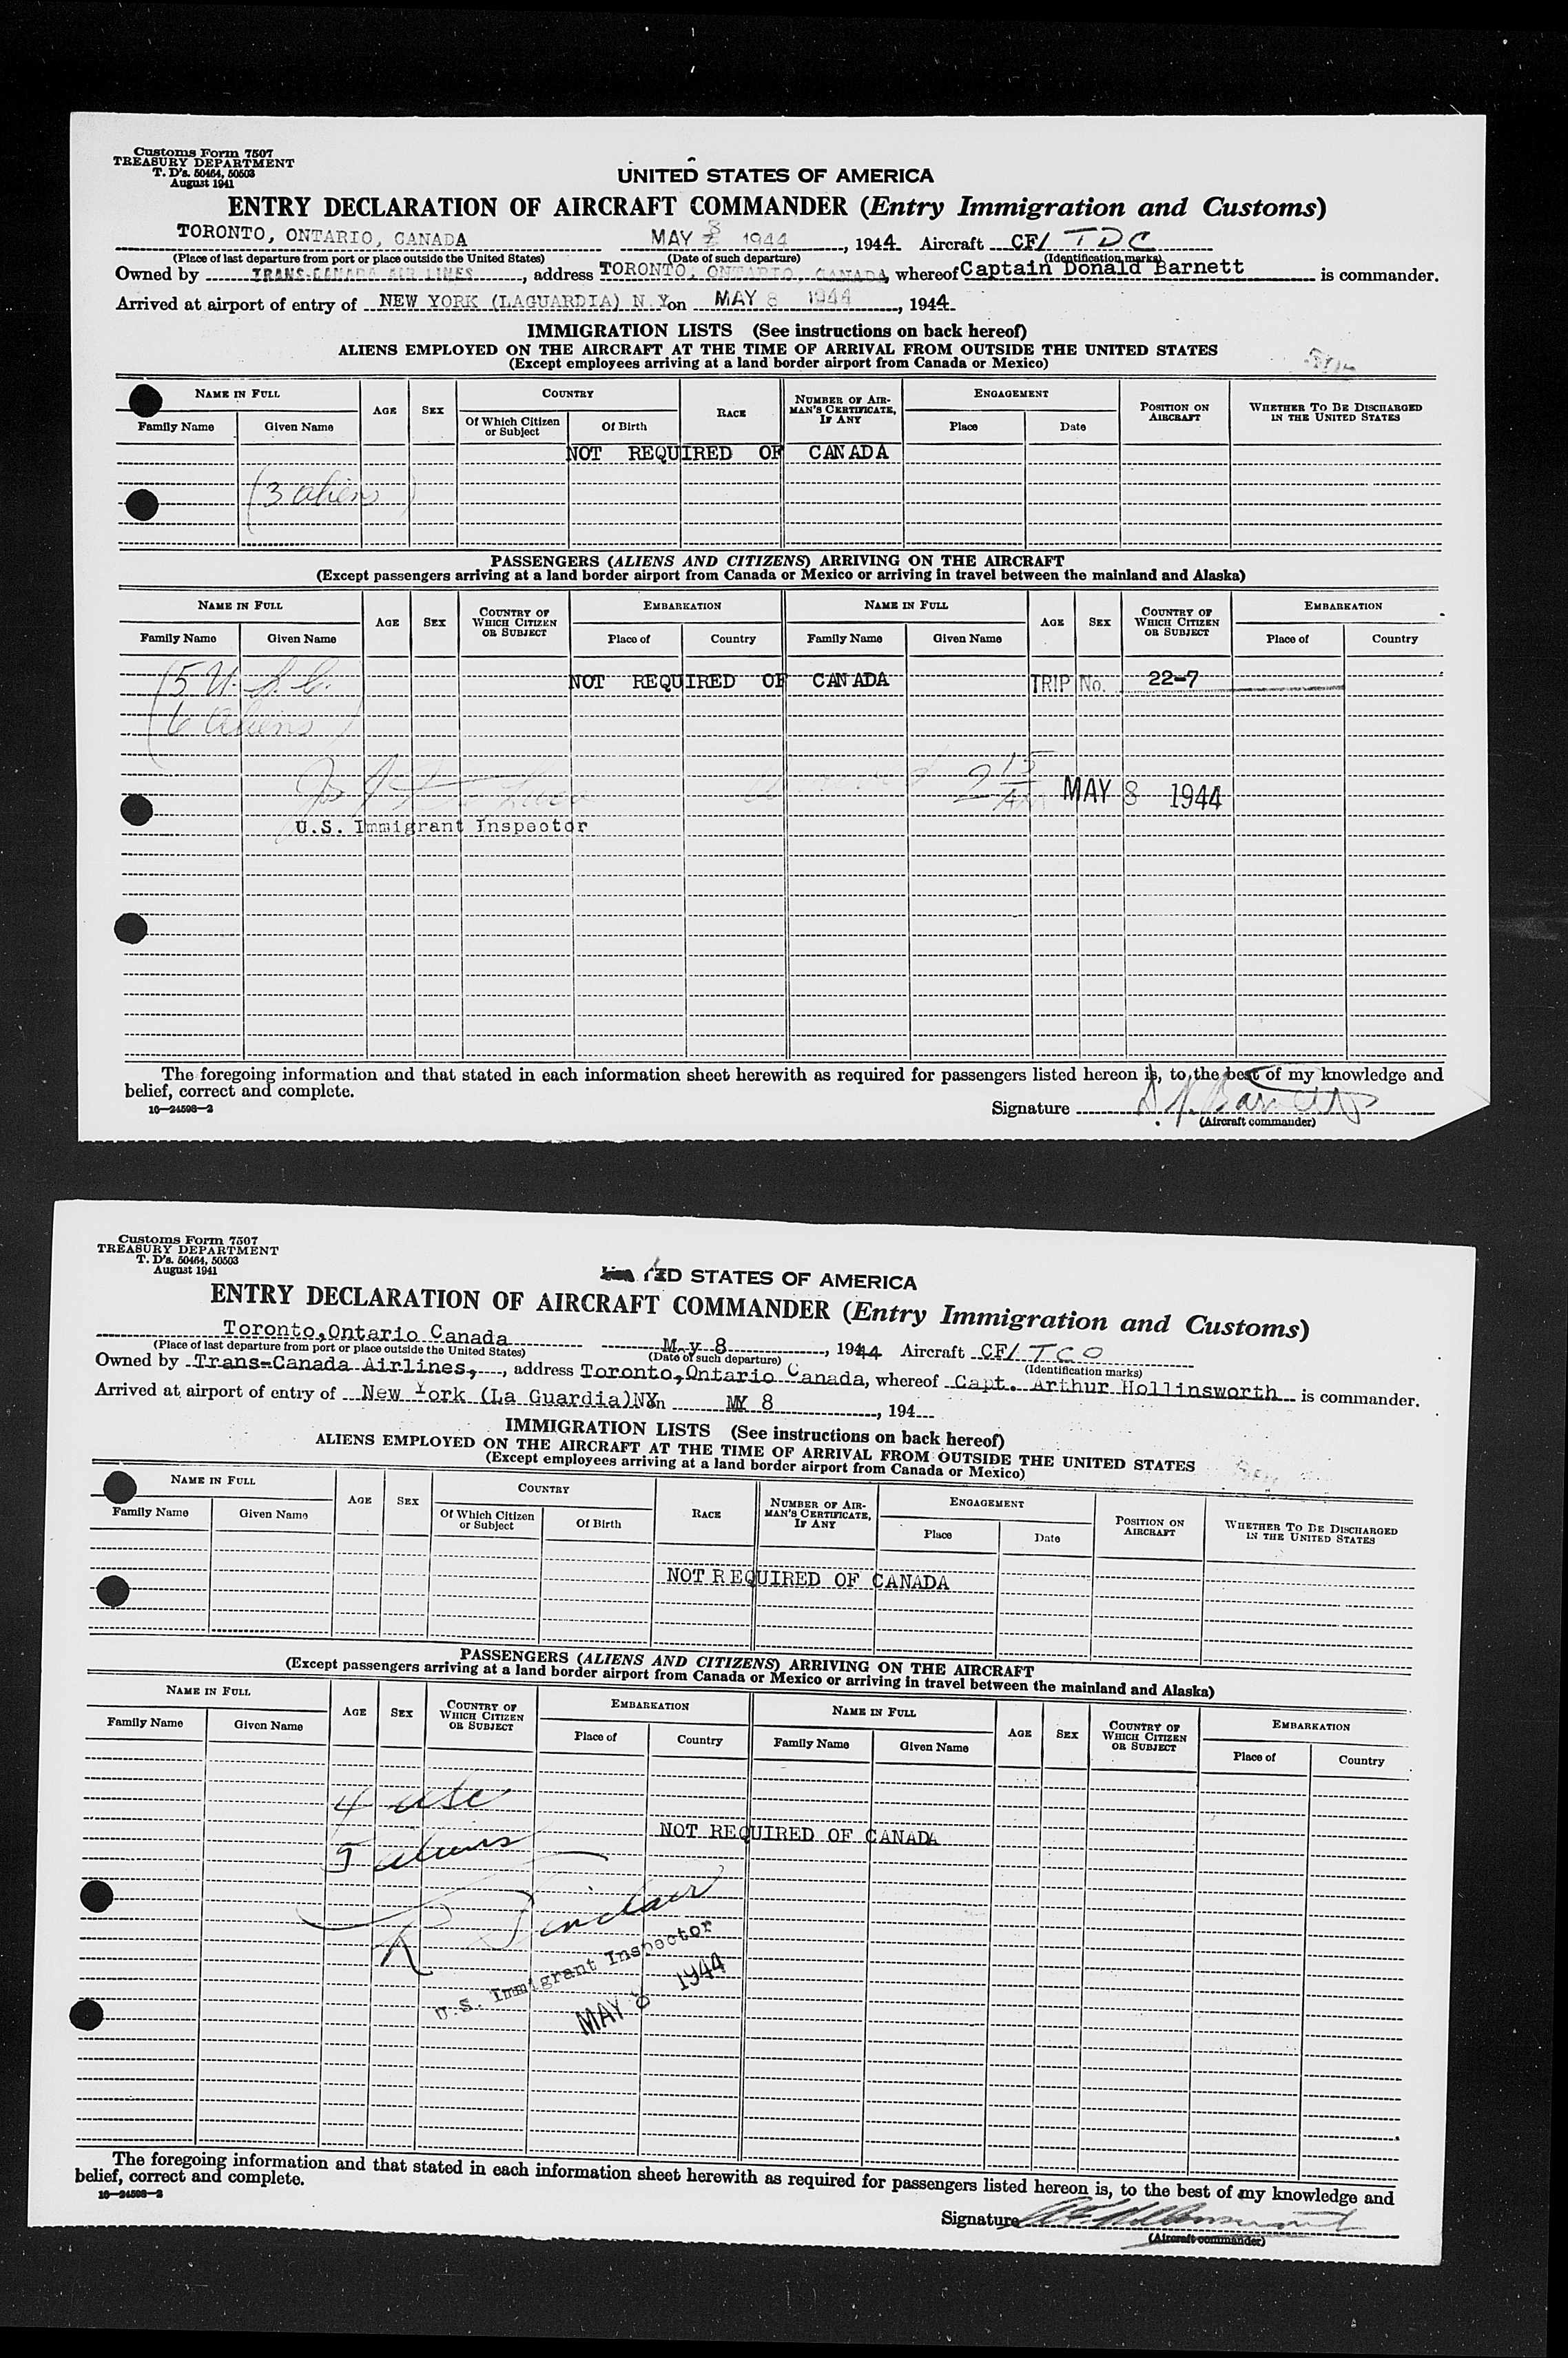 Customs Form 7507
TREASURY DEPARTMENT
T. D's. 50464, 50503
August 1941
UNITED STATES OF AMERICA
ENTRY DECLARATION OF AIRCRAFT COMMANDER (Entry Immigration and Customs)
TORONTO, ONTARIO, CANADA MAY 8 1944, 1944 Aircraft CF/ TDC
(Place of last departure from port or place outside the United States) (Date of such departure) (Identification marks)
Owned by TRANS-CANADA AIR LINES, address TORONTO, ONTARIO, CANADA, whereof Captain Donald Barnett is commander.
Arrived at airport of entry of NEW YORK (LAGUARDIA) N.Y. on MAY 8 1944, 1944
IMMIGRATION LISTS (See instructions on back hereof)
ALIENS EMPLOYED ON THE AIRCRAFT AT THE TIME OF ARRIVAL FROM OUTSIDE THE UNITED STATES
(Except employees arriving at a land border airport from Canada or Mexico)
NAME IN FULL AGE SEX COUNTRY RACE NUMBER OF AIRMAN'S CERTIFICATE, IF ANY ENGAGEMENT POSITION ON AIRCRAFT WHETHER TO BE DISCHARGED IN THE UNITED STATES
Family Name Given Name Of Which Citizen or Subject Of Birth Place Date
NOT REQUIRED OF CANADA
(3 aliens)
PASSENGERS (ALIENS AND CITIZENS) ARRIVING ON THE AIRCRAFT
(Except passengers arriving at a land border airport from Canada or Mexico or arriving in travel between the mainland and Alaska)
NAME IN FULL AGE SEX COUNTRY OF WHICH CITIZEN OR SUBJECT EMBARKATION NAME IN FULL AGE SEX COUNTRY OF WHICH CITIZEN OR SUBJECT EMBARKATION
Family Name Given Name Place of Country Family Name Given Name Place of Country
(5 U.S.C. NOT REQUIRED OF CANADA TRIP No. 22-7
6 aliens)
2 15 AM MAY 8 1944
U.S. Immigrant Inspector
The foregoing information and that stated in each information sheet herewith as required for passengers listed hereon is, to the best of my knowledge and
belief, correct and complete.
16—24598—2
Signature D. Barnett
(Aircraft commander)
Customs Form 7507
TREASURY DEPARTMENT
T. D's. 50464, 50503
August 1941
ED STATES OF AMERICA
ENTRY DECLARATION OF AIRCRAFT COMMANDER (Entry Immigration and Customs)
Toronto,Ontario Canada M y 8, 1944 Aircraft CF/ TCO
(Place of last departure from port or place outside the United States) (Date of such departure) (Identification marks)
Owned by Trans-Canada Airlines, address Toronto,Ontario Canada, whereof Capt. Arthur Hollinsworth is commander.
Arrived at airport of entry of New York (La Guardia)NY on MY 8, 194
IMMIGRATION LISTS (See instructions on back hereof)
ALIENS EMPLOYED ON THE AIRCRAFT AT THE TIME OF ARRIVAL FROM OUTSIDE THE UNITED STATES
(Except employees arriving at a land border airport from Canada or Mexico)
NAME IN FULL AGE SEX COUNTRY RACE NUMBER OF AIRMAN'S CERTIFICATE, IF ANY ENGAGEMENT POSITION ON AIRCRAFT WHETHER TO BE DISCHARGED IN THE UNITED STATES
Family Name Given Name Of Which Citizen or Subject Of Birth Place Date
NOT REQUIRED OF CANADA
PASSENGERS (ALIENS AND CITIZENS) ARRIVING ON THE AIRCRAFT
(Except passengers arriving at a land border airport from Canada or Mexico or arriving in travel between the mainland and Alaska)
NAME IN FULL AGE SEX COUNTRY OF WHICH CITIZEN OR SUBJECT EMBARKATION NAME IN FULL AGE SEX COUNTRY OF WHICH CITIZEN OR SUBJECT EMBARKATION
Family Name Given Name Place of Country Family Name Given Name Place of Country
4 usc
NOT REQUIRED OF CANADA
5 aliens
R Sinclair
U.S. Immigrant Inspector
MAY 8 1944
The foregoing information and that stated in each information sheet herewith as required for passengers listed hereon is, to the best of my knowledge and
belief, correct and complete.
16—24598—2
Signature
(Aircraft commander)